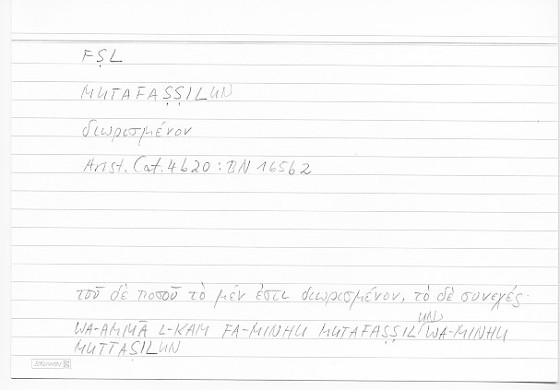 FṢL
MUTAFAṢṢILUN
διωρισμένον
Arist. Cat. 4b20 : BN 165b2
τοῦ δὲ ποσοῦ τὸ μέν ἐστι διωρισμένον, τὸ δὲ συνεχές.
UN
WA-AMMĀ L-KAM FA-MINHU MUTAFAṢṢIL/WA-MINHU
MUTTAṢILUN